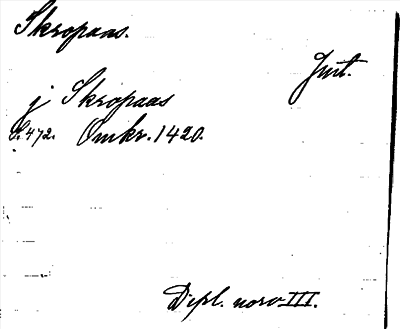 Skropaas.
Jmt.
j Skropaas
S. 472. Omkr. 1420.
Dipl. norv. III.